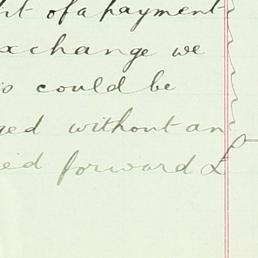 of a payment
xchange we
could be
ged without an
ied forward £